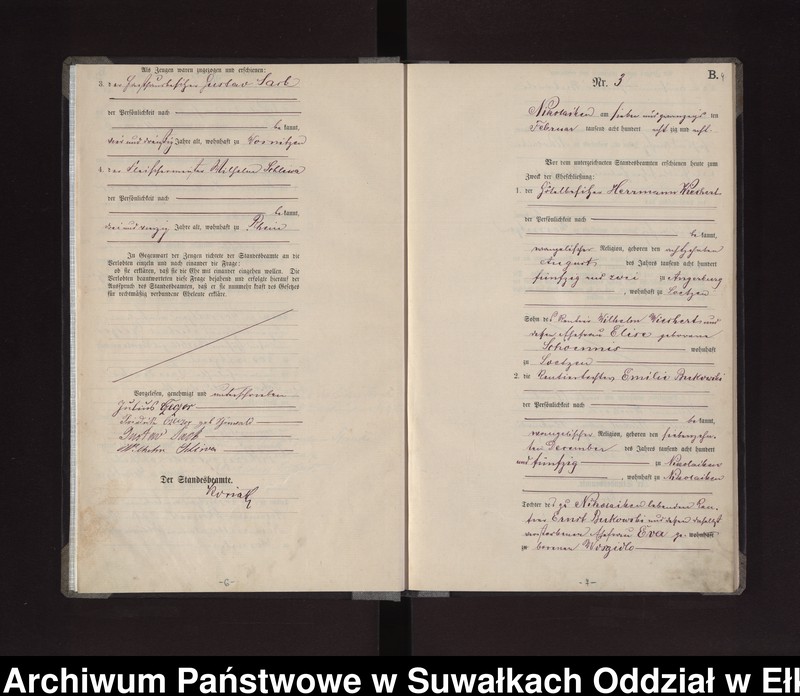 Als Zeugen waren zugezogen und erschienen:
3. der Gustav Sarb
der Persönlichkeit nach
be kannt,
drei und dreißig Jahre alt, wohnhaft zu
4. der Fleischermeister Wilhelm Schlewa
der Persönlichkeit nach
be kannt,
Jahre alt, wohnhaft zu Rhein
In Gegenwart der Zeugen richtete der Standesbeamte an die
Verlobten einzeln und nach einander die Frage:
ob sie erklären, daß sie die Ehe mit einander eingehen wollen. Die
Verlobten beantworteten diese Frage bejahend und erfolgte hierauf der
Ausspruch des Standesbeamten, daß er sie nunmehr kraft des Gesetzes
für rechtmäßig verbundene Eheleute erkläre.
Vorgelesen, genehmigt und unterschrieben
Julius
geb
Gustav Sarb
Wilhelm Schlewa
Der Standesbeamte.
-6-
B.
Nr. 3
Nikolaiken am sieben und zwanzigsten
Februar tausend acht hundert acht zig und acht
Vor dem unterzeichneten Standesbeamten erschienen heute zum
Zweck der Eheschließung:
1. der Hôtelbesitzer Herrmann Wiechert
der Persönlichkeit nach
be kannt,
evangelischer Religion, geboren den achtzehnten
August des Jahres tausend acht hundert
fünfzig und zwei zu Angerburg
, wohnhaft zu Loetzen
Sohn des Rentiers Wilhelm Wiechert und
dessen Ehefrau Elise geborene
wohnhaft
zu Loetzen
2. die Rentiertochter Emilie Borkowski
der Persönlichkeit nach
be kannt,
evangelischer Religion, geboren den siebenzehn-
ten December des Jahres tausend acht hundert
und fünfzig zu Nikolaiken
, wohnhaft zu Nikolaiken
Tochter des zu Nikolaiken lebenden Ren-
tiers Ernst Borkowski und dessen daselbst
verstorbenen Ehefrau Eva ge- wohnhaft
zu borenen Woszidlo
Archiwum Państwowe w Suwałkach Oddział w Eł